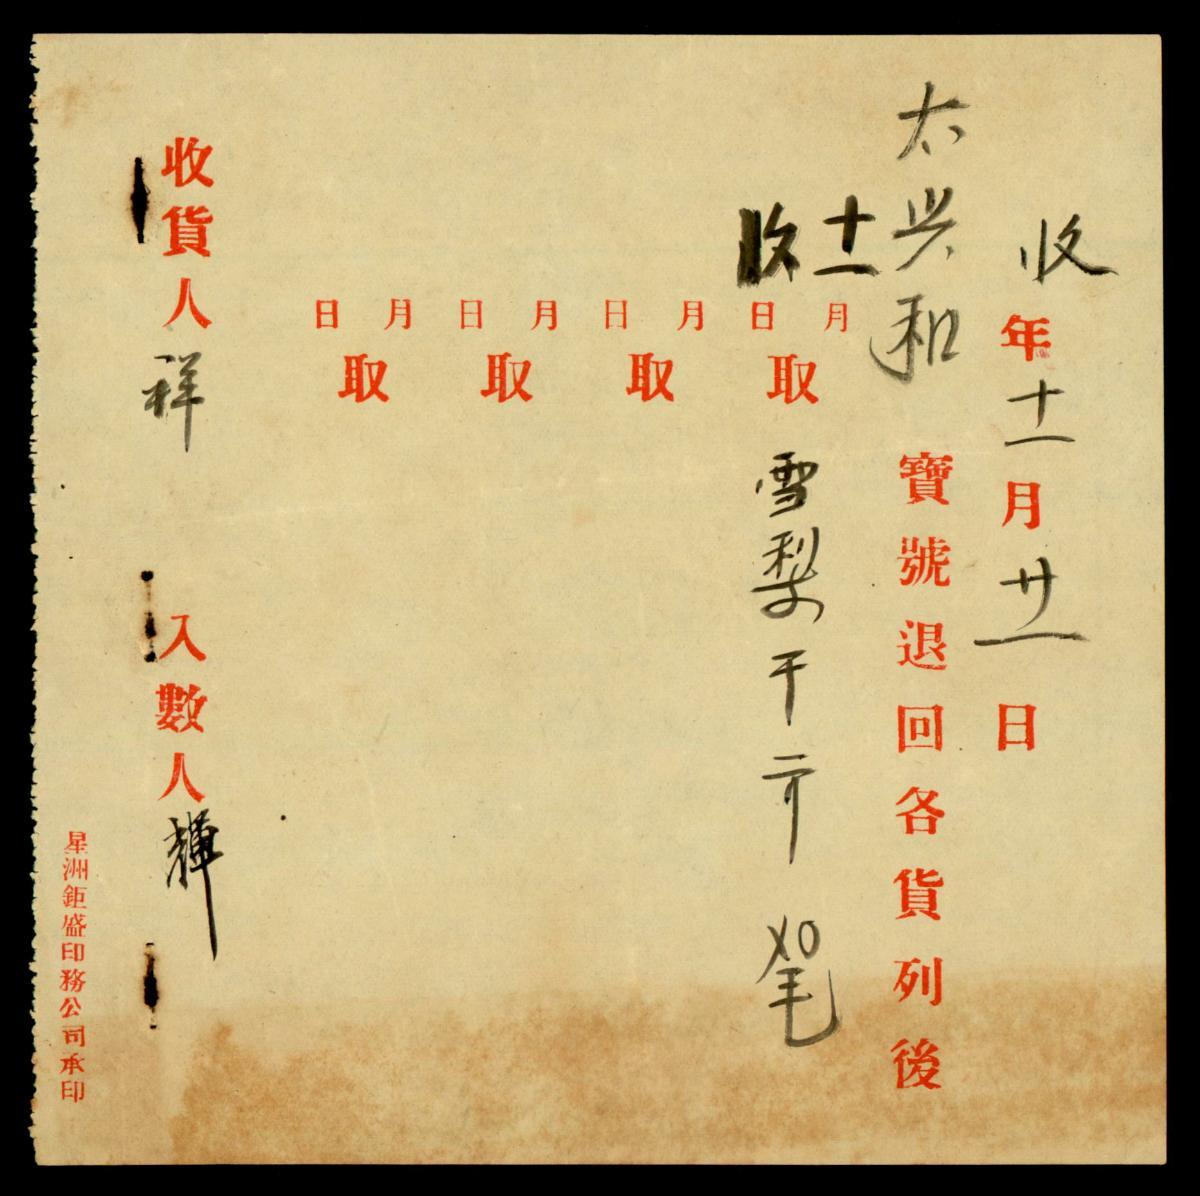 收年十一月廿一日
太兴和寶號退回各貨列後
十一月收日取雪梨干
月日取
月日取
月日取
收貨人祥 入數人輝
星洲鉅盛印務公司承印